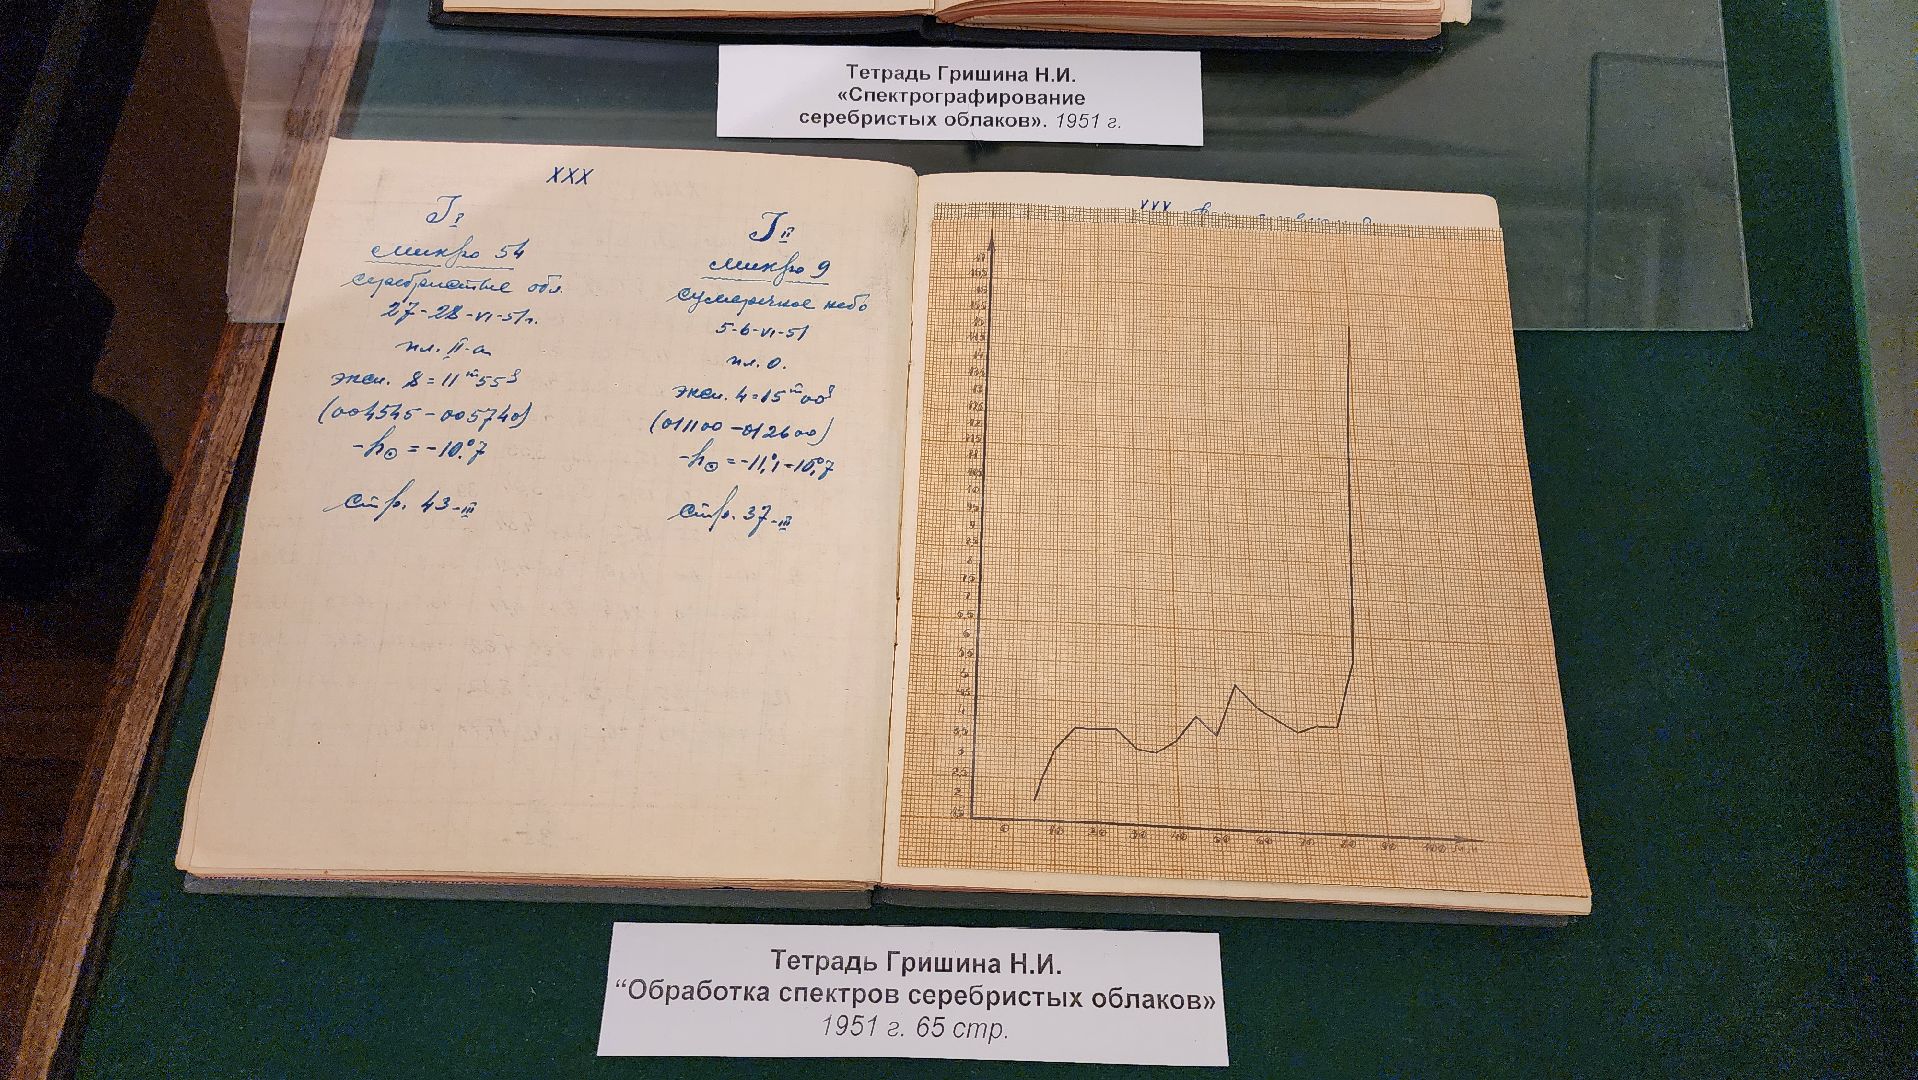 Тетрадь Гришина Н.И.
«Спектрографирование
серебристых облаков». 1951 г.
XXX
J I
микро 54
серебристые обл.
27-28-VI-51г.
пл. II-а
эксп. 8 = 11ᵐ55ˢ
(004545 - 005740)
-h☉ = -10°.7
стр. 43-III
J II
микро 9
сумеречное небо
5-6-VI-51
пл. 0.
эксп. 4 = 15ᵐ00ˢ
(011100 - 012600)
-h☉ = -11°,1-10°,7
стр. 37-III
XXX
17
16,5
16
15,5
15
14,5
14
13,5
13
12,5
12
11,5
11
10,5
10
9,5
9
8,5
8
7,5
7
6,5
6
5,5
5
4,5
4
3,5
3
2,5
2
1,5
0 10 20 30 40 50 60 70 80 90 100
Тетрадь Гришина Н.И.
“Обработка спектров серебристых облаков»
1951 г. 65 стр.